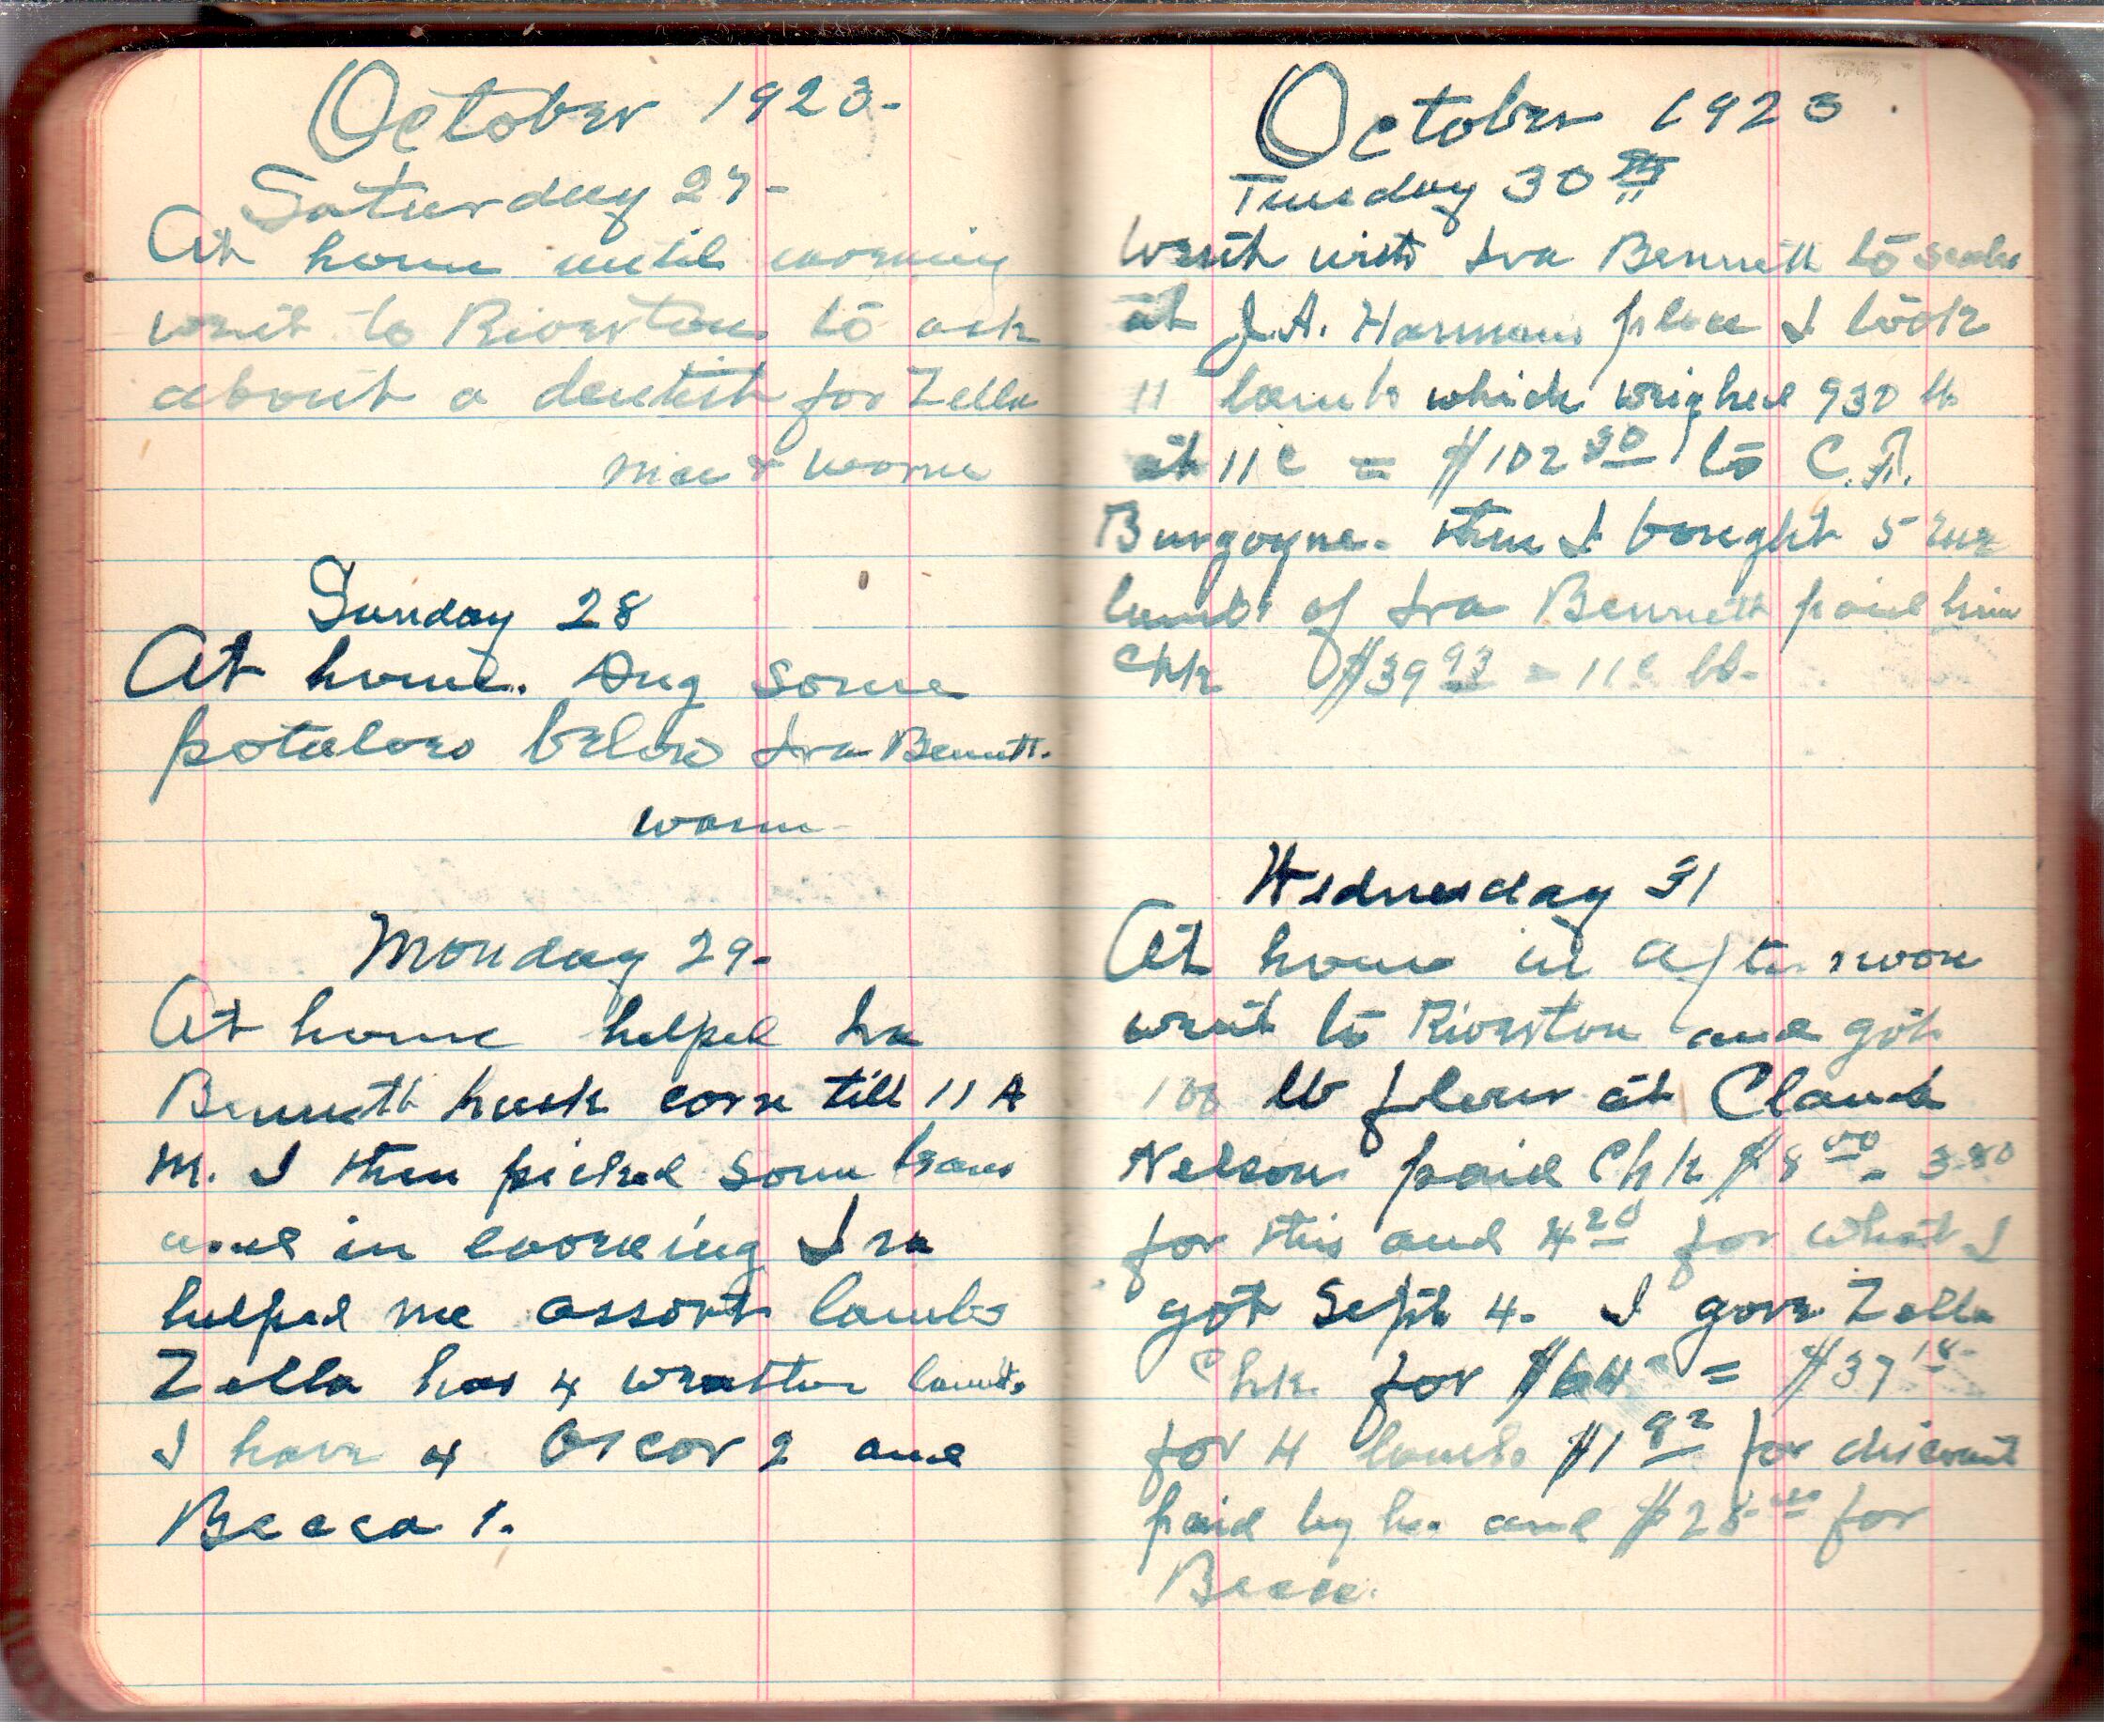 October 1923-
Saturday 27-
At home until evening
went to Riverton to ask
about a dentist for Zella
nice & warm
Sunday 28
At home. Dug some
potatoes below Ira Bennett.
warm
Monday 29-
At home helped Ira
Bennett husk corn till 11 A
M. I then picked some beans
and in evening Ira
helped me assort lambs
Zella has 4 weather lambs
I have 4 Oscar 2 and
Becca 1.
October 1923
Tuesday 30th
Went with Ira Bennett to scales
at J.A. Harmans place I took
11 lambs which weighed 930 lb
at 11c = $102 30 to C.A.
Burgoyne. then I bought 5 ewe
lambs of Ira Bennett paid him
Chk $39 93 = 11c lb.
Wednesday 31
At home in afternoon
went to Riverton and got
100 lb flour at Claude
Nelsons paid Chk $8 00 - 3.80
for this and 4 20 for what I
got Sept 4. I gave Zella
Chk. for $64 = $37 18
for 4 lambs $1 82 for discount
paid by her and $25 00 for
Becca.